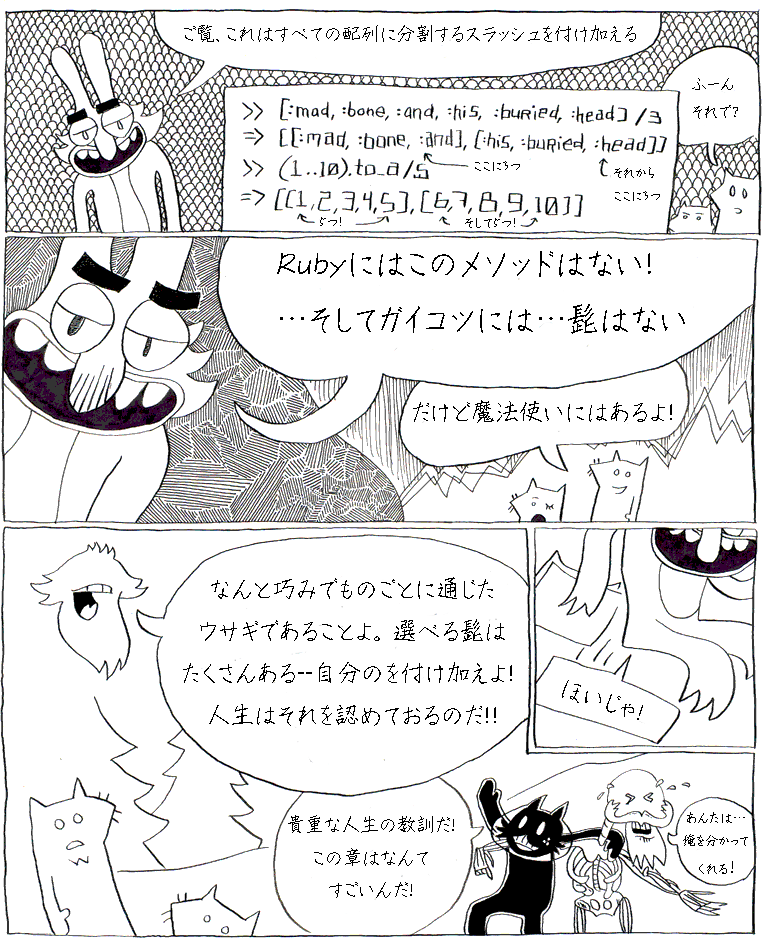 ご覧、これはすべての配列に分割するスラッシュを付け加える
ふーん
それで?
>> [:mad, :bone, :and, :his, :buried, :head] /3
=> [[:mad, :bone, :and], [:his, :buried, :head]]
ここに3つ
それから
ここに3つ
>> (1..10).to_a/5
=> [[1,2,3,4,5],[6,7,8,9,10]]
5つ!
そして5つ!
Rubyにはこのメソッドはない!
…そしてガイコツには…髭はない
だけど魔法使いにはあるよ!
なんと巧みでものごとに通じた
ウサギであることよ。選べる髭は
たくさんある--自分のを付け加えよ!
人生はそれを認めておるのだ!!
ほいじゃ!
貴重な人生の教訓だ!
この章はなんて
すごいんだ!
あんたは…
俺を分かって
くれる!